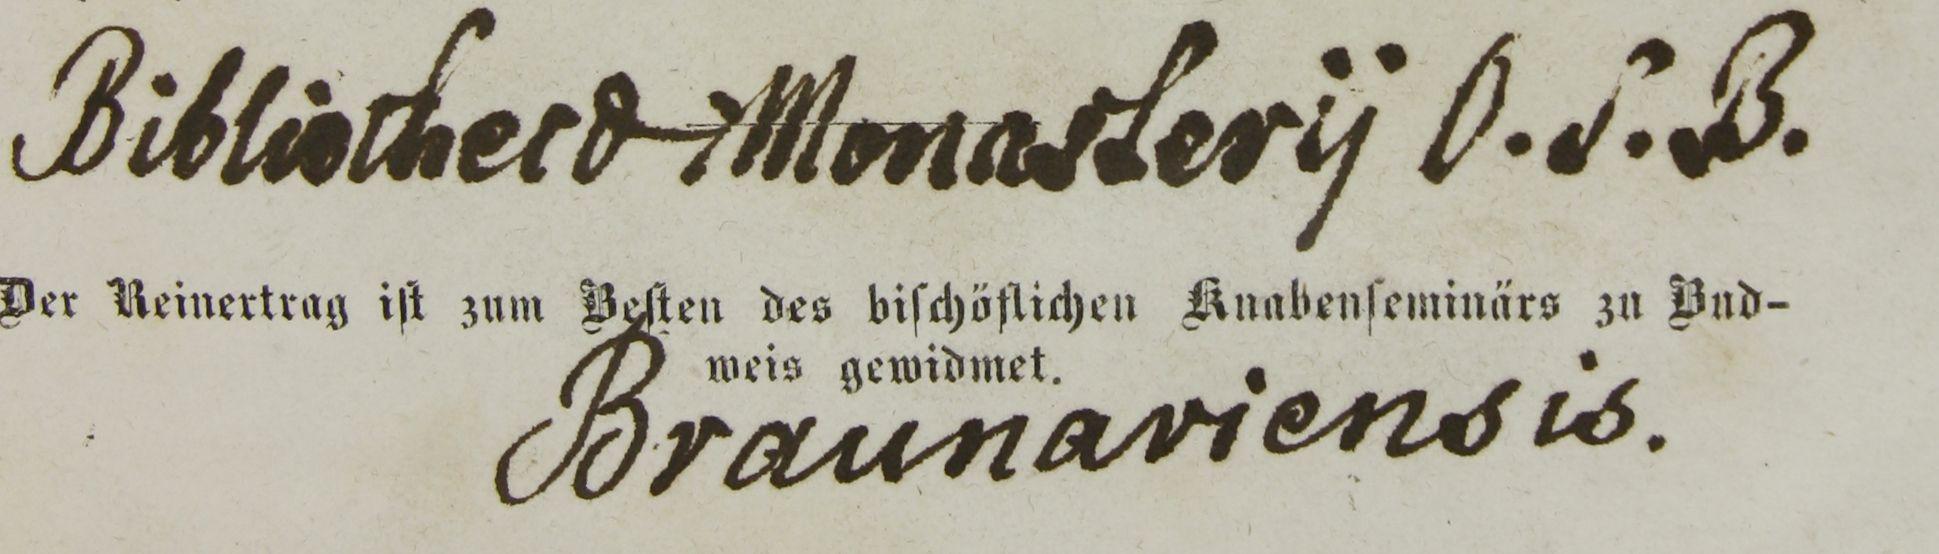 Bibliothecæ Monasterij O. S. B.
Der Reinertrag ist zum Besten des bischöflichen Knabenseminärs zu Bud-
weis gewidmet.
Braunariensis.